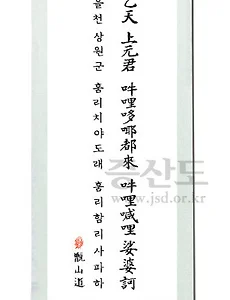 乙天 上元君 吽哩哆㖿都來 吽哩喊哩 娑婆訶
을천 상원군 훔리치야도래 훔리함리사파하
甑山道
증산도
www.jsd.or.kr